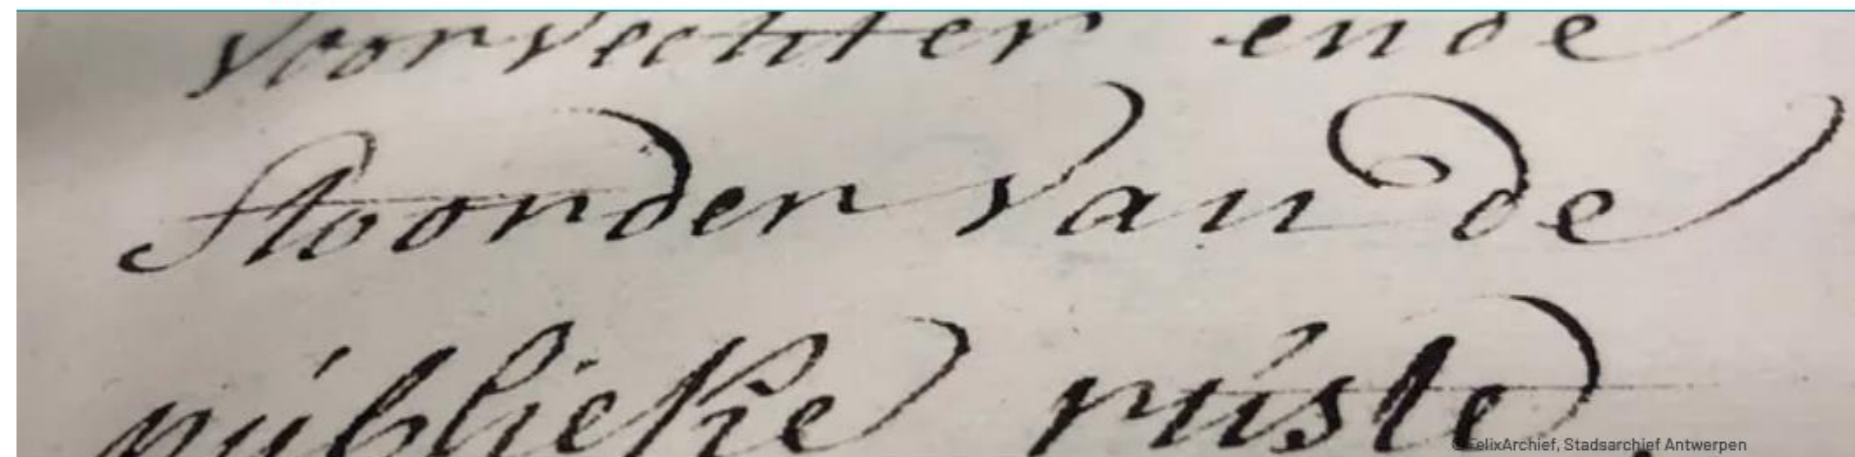 voorvechter ende
stoorder van de
publieke ruste
© FelixArchief, Stadsarchief Antwerpen